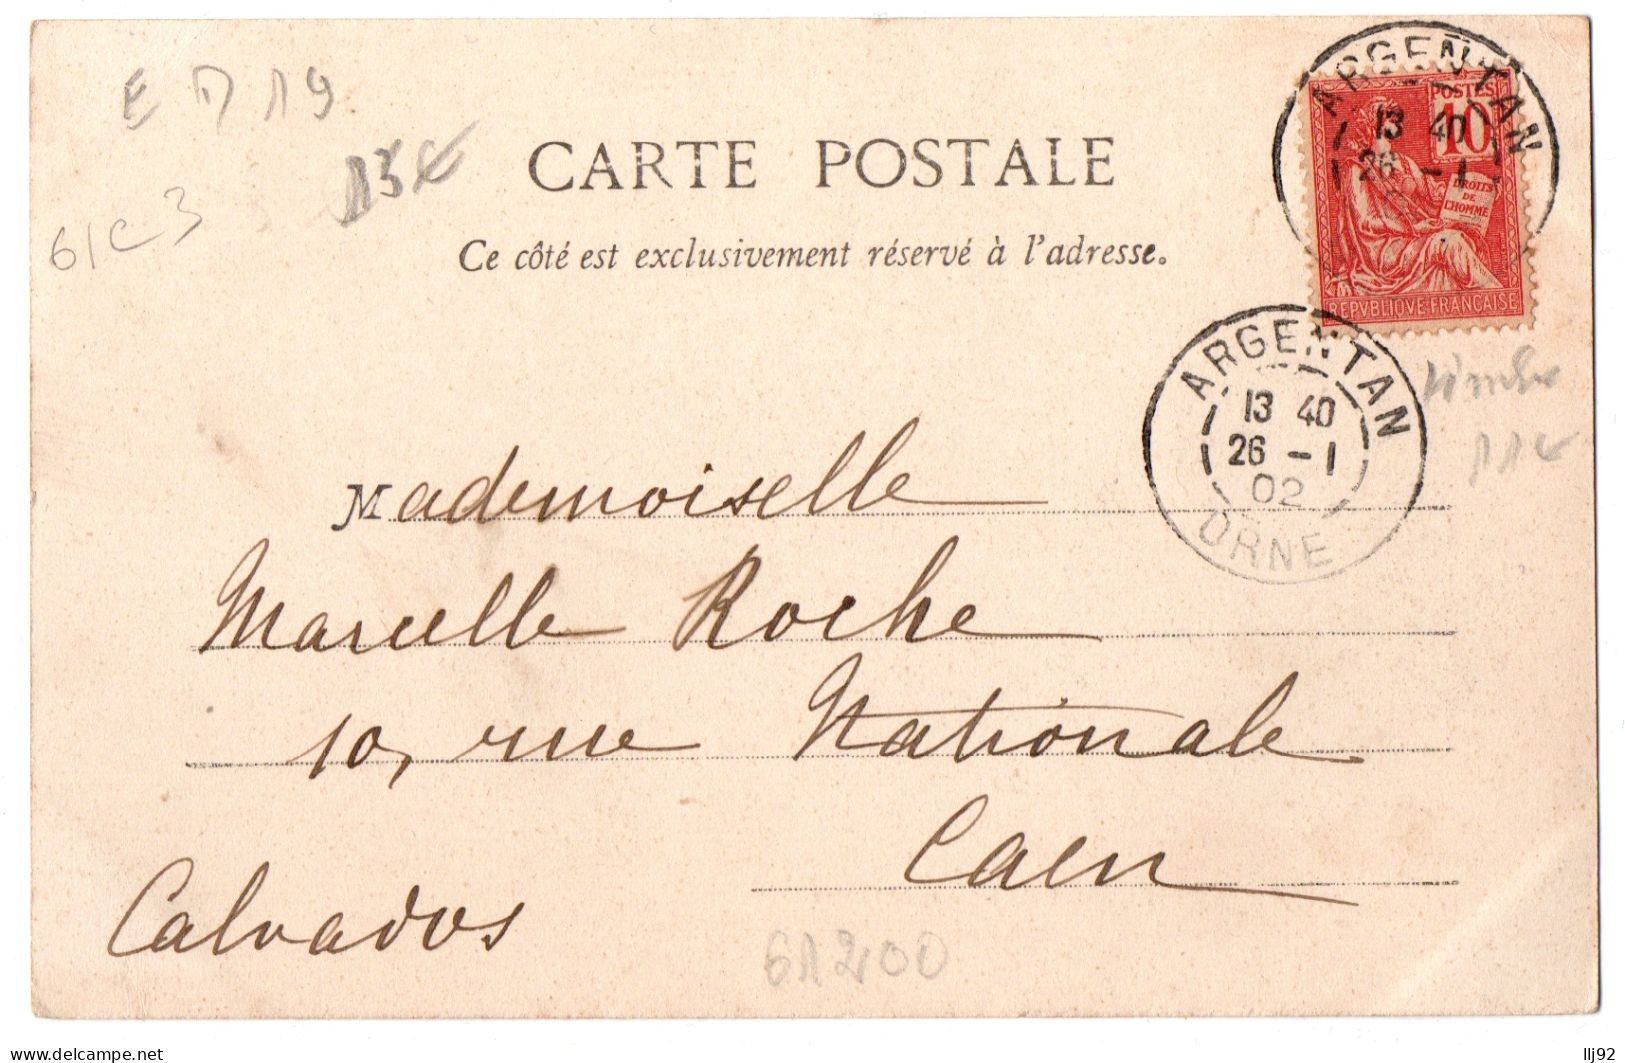 E D 19
13€
61C3
CARTE POSTALE
Ce côté est exclusivement réservé à l'adresse.
ARGENTAN
13 40
26 - 1
POSTES
10
DROITS
DE
L'HOMME
REPVBLIQVE FRANÇAISE
ARGENTAN
13 40
26 - 1
02
ORNE
timbre
11€
Mademoiselle
Marcelle Roche
10, rue Nationale
Caen
Calvados
61200
www.delcampe.net
llj92